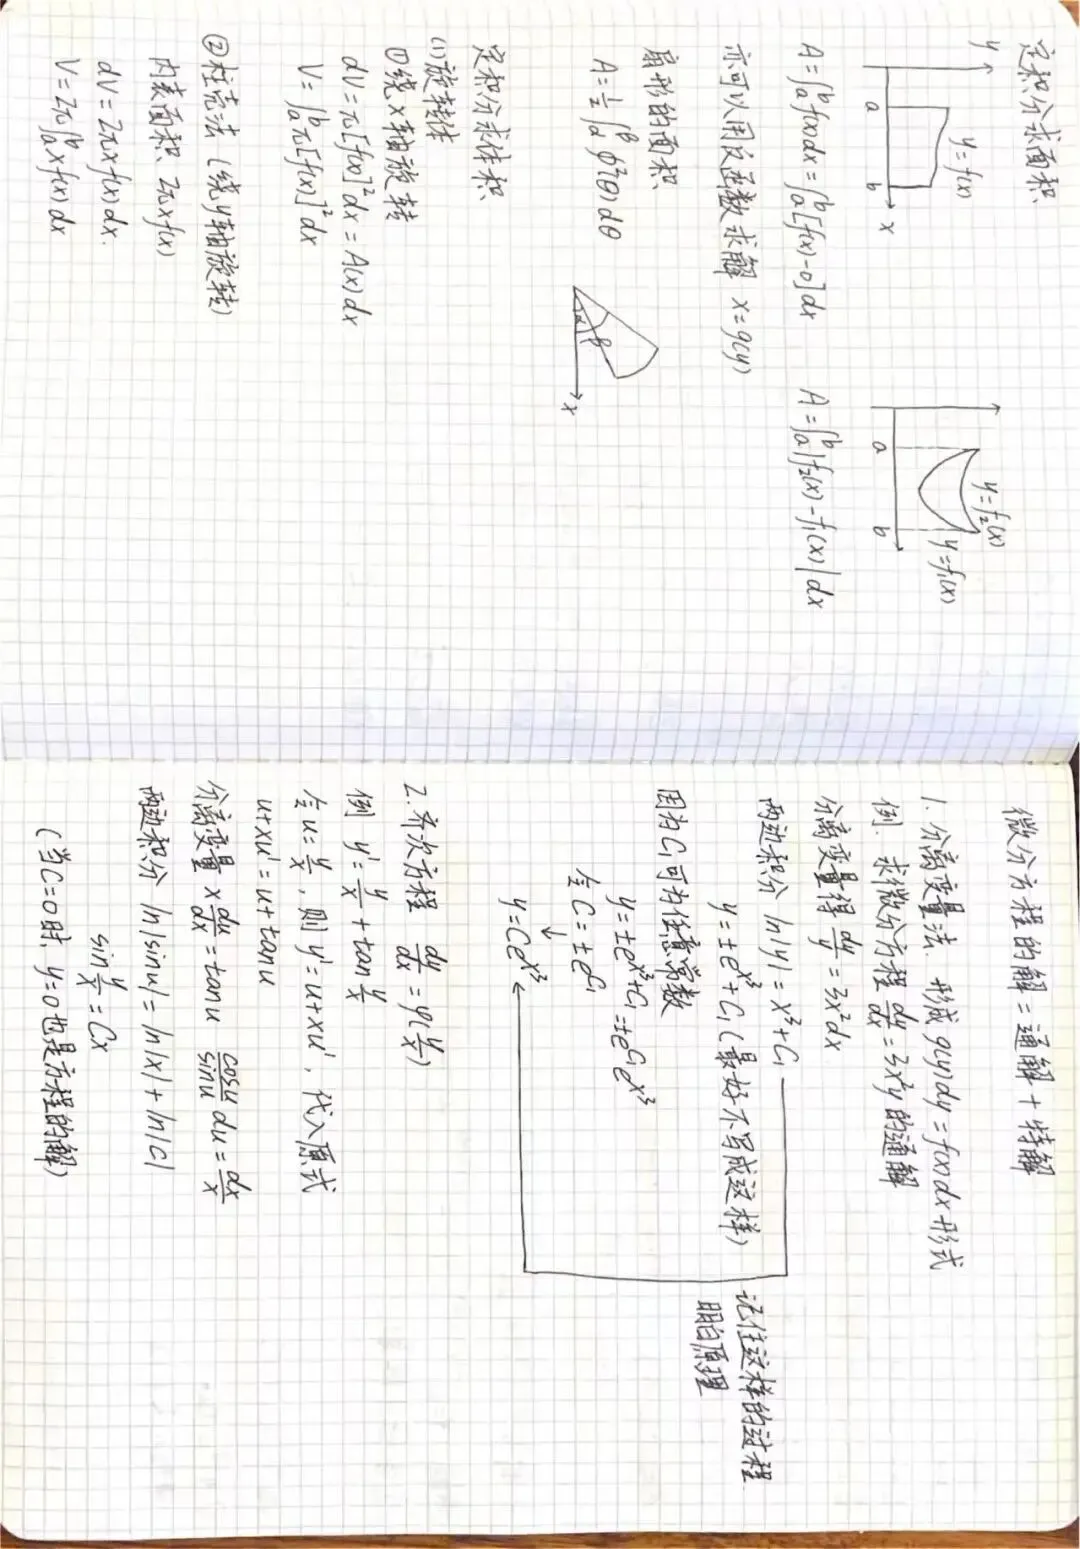 定积分求面积
y
y=f(x)
a
b
x
y=f₂(x)
y=f₁(x)
a
b
A=∫ₐᵇf(x)dx=∫ₐᵇ[f(x)-0]dx
A=∫ₐᵇ|f₂(x)-f₁(x)|dx
亦可以用反函数求解 x=g(y)
扇形的面积
A=½∫_α^β φ²(θ)dθ
α
β
x
定积分求体积
(1)旋转体
①绕x轴旋转
dV=π[f(x)]²dx=A(x)dx
V=∫ₐᵇπ[f(x)]²dx
②柱壳法(绕y轴旋转)
内表面积 2πxf(x)
dV=2πxf(x)dx.
V=2π∫ₐᵇxf(x)dx
微分方程的解=通解+特解
1.分离变量法.形成g(y)dy=f(x)dx形式
例.求微分方程dy/dx=3x²y的通解
分离变量得 dy/y=3x²dx
两边积分 ln|y|=x³+C₁
y=±e^x³+C₁(最好不写成这样)
因为C₁可为任意常数
y=±e^(x³+C₁)=±e^C₁e^x³
令C=±e^C₁
↓
y=Ce^x³
记住这样的过程
明白原理
2.齐次方程 dy/dx=φ(y/x)
例 y'=y/x+tan y/x
令u=y/x,则y'=u+xu',代入原式
u+xu'=u+tanu
分离变量 x du/dx=tanu cosu/sinu du=dx/x
两边积分 ln|sinu|=ln|x|+ln|C|
sin y/x=Cx
(当C=0时,y=0也是方程的解)